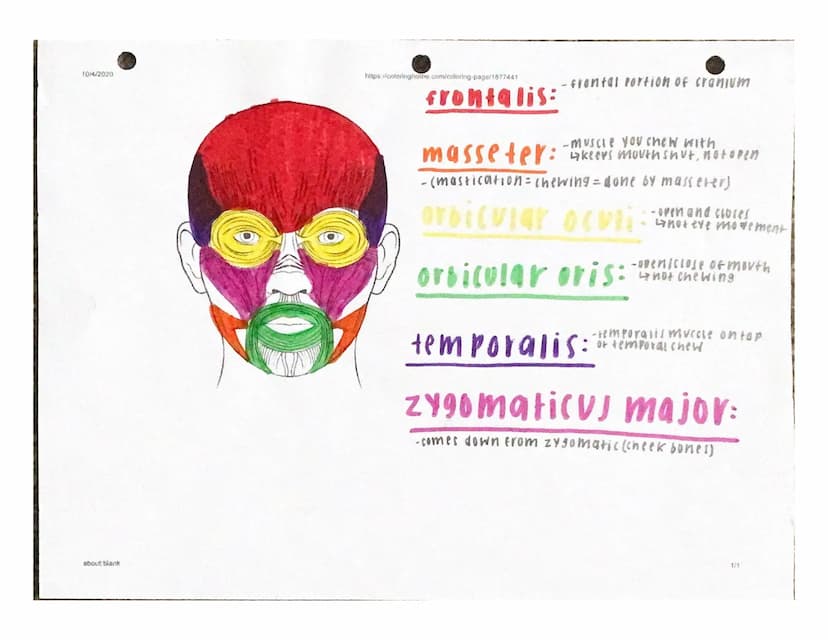 10/4/2020
https://coloringhome.com/coloring-page/1877441
frontalis: -frontal portion of cranium
masseter: -muscle you chew with
↳keeps mouth shut, not open
-(mastication=chewing=done by masseter)
orbicular oculi: -open and closes
↳not eye movement
orbicular oris: -open/close of mouth
↳not chewing
temporalis: -temporalis muscle on top
of temporal chew
zygomaticus major:
-comes down from zygomatic (cheek bones)
about:blank
1/1